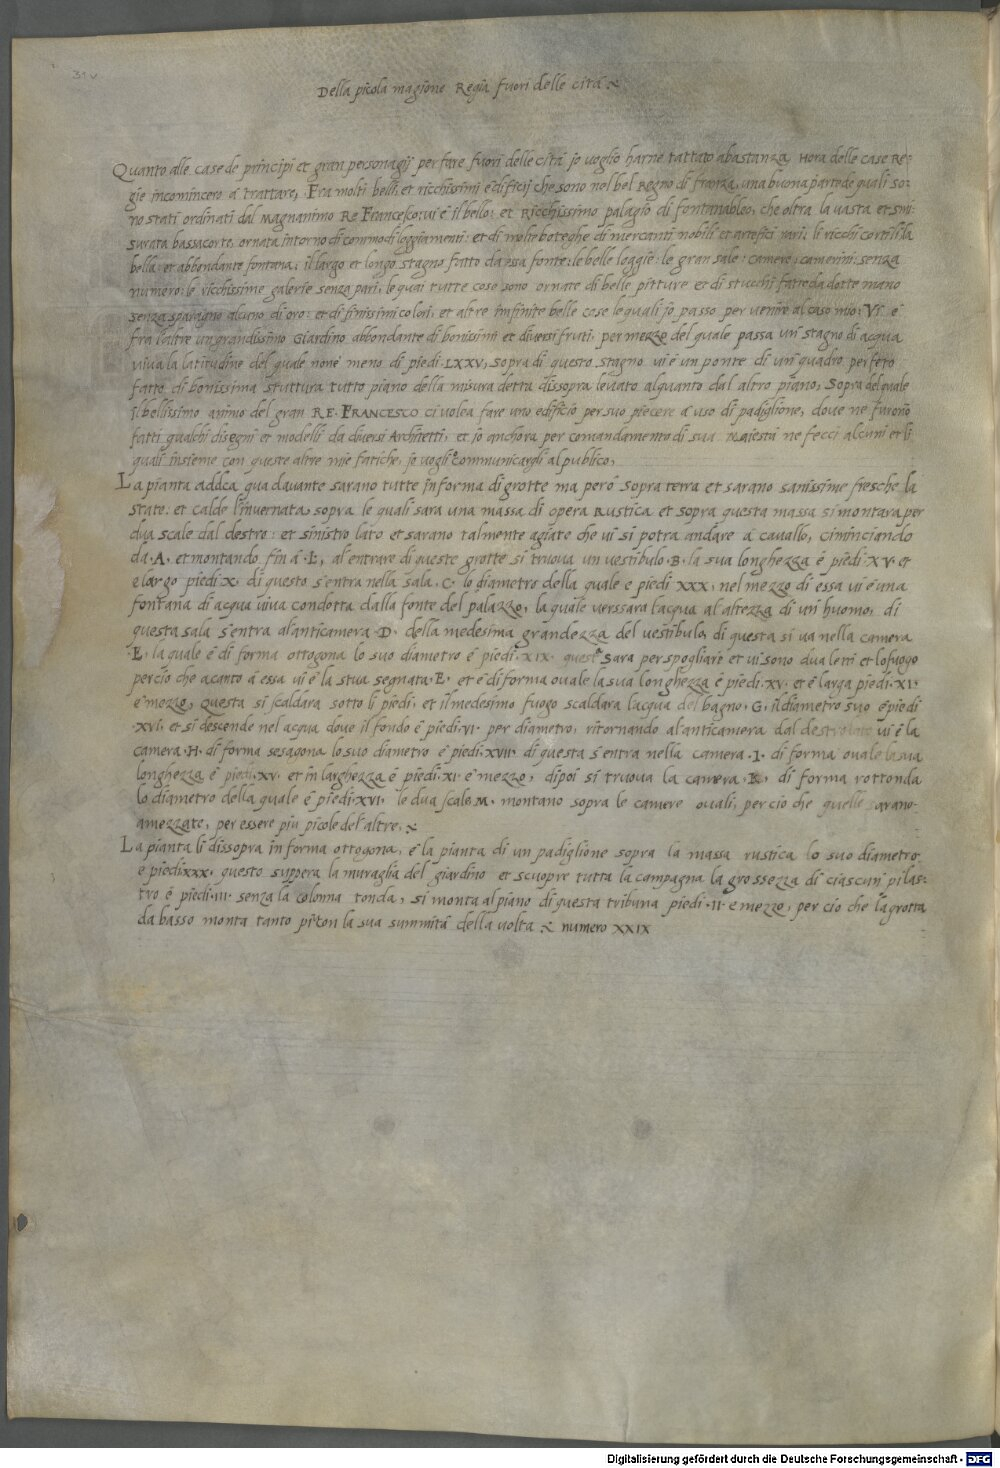 31 v
Della picola magione Regia fuori delle cità
Quanto alle case de principi et gran personagij per fare fuori delle cità jo voglio harne tattato abastanza Hora delle case Re-
gie incomincero à trattare, Fra molti belli, et ricchissimi edificij che sono nel bel Regno di franza, una buona parte de quali so-
no stati ordinati dal Magnanimo Re Francesco: vi è il bello: et Ricchissimo palagio di fontanableo, che oltra la vasta et smi-
surata bassacorte, ornata intorno di commodi loggiamenti: et di molte boteghe di mercanti nobili et artefici rari, li ricchi cortili, la
bella, et abbondante fontana, il largo et longo stagno fatto da essa fonte, le belle loggie: le gran sale: camere, camerini, senza
numero: le ricchissime galerie senza pari, le quai tutte cose sono ornate di belle pitture et di stucchi fatte da dotte mano
senza sparagno alcuno di oro: et di finissimi colori, et altre infinite belle cose le quali jo passo per venire al caso mio: Vi è
fra l'altre un grandissimo Giardino abbondante di bonissimi et diversi fruti, per mezzo del quale passa un stagno di acqua
viva la latitudine del quale non è meno di piedi LXXV, sopra di questo stagno vi è un ponte di un quadro perfeto
fatto di bonissima struttura tutto piano della misura detta dissopra levato alquanto dal altro piano, Sopra del quale
il bellissimo animo del gran RE FRANCESCO ci volea fare uno edificio per suo piecere à uso di padiglione, dove ne furono
fatti qualchi disegni et modelli da diversi Architetti, et jo anchora per comandamento di sua Maiestà ne fecci alcuni et li
quali insieme con queste altre mie fatiche, jo voglio communicargli al publico,
La pianta addca qua davante sarano tutte in forma di grotte ma però sopra terra et sarano sanissime fresche la
state, et calde l'invernata, sopra le quali sara una massa di opera Rustica et sopra questa massa si montara per
dua scale dal destro: et sinistro lato et sarano talmente agiate che vi si potra andare à cavallo, cominciando
da A, et montando fin à L, al entrare di queste grotte si truova un vestibulo B, la sua longhezza è piedi XV et
è largo piedi X, di questo s'entra nella sala, C, lo diametro della quale è piedi XXX, nel mezzo di essa vi è una
fontana di acqua viva condotta dalla fonte del palazzo, la quale verssara l'acqua al altezza di un huomo, di
questa sala s'entra al'anticamera D, della medesima grandezza del vestibulo, di questa si va nella camera
E, la quale è di forma ottogona lo suo diametro è piedi XIX questa sara per spogliare et vi sono dua letti et lo fuogo
percio che acanto à essa vi è la stua segnata F, et è di forma ovale la sua longhezza è piedi XV, et è larga piedi XI
e mezzo, Questa si scaldara sotto li piedi, et il medesimo fuogo scaldara l'acqua del bagno, G, il diametro suo è piedi
XVI, et si descende nel acqua dove il fondo è piedi VI per diametro, ritornando al'anticamera dal destro lato vi è la
camera H di forma sesagona lo suo diametro è piedi XVII di questa s'entra nella camera I di forma ovale la sua
longhezza è piedi XV et in larghezza è piedi XI e mezzo, dipoi si truova la camera K, di forma rottonda
lo diametro della quale è piedi XVI, le dua scale M montano sopra le camere ovali, per cio che quelle sarano
amezzate, per essere piu picole del'altre,
La pianta li dissopra in forma ottogona, è la pianta di un padiglione sopra la massa rustica lo suo diametro
è piedi XXX, questo suppera la muraglia del giardino et scuopre tutta la compagna la grossezza di ciascun pilas-
tro è piedi III senza la colonna tonda, si monta al piano di questa tribuna piedi II e mezzo, per cio che la grotta
da basso monta tanto piu con la sua summità della volta numero XXIX
Digitalisierung gefördert durch die Deutsche Forschungsgemeinschaft - DFG